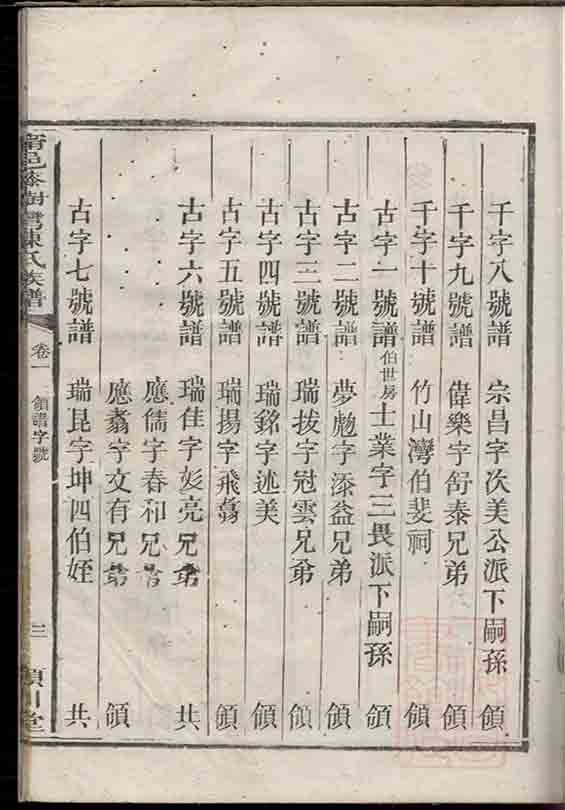 千字八號譜 宗昌字次美公派下嗣孫 領
千字九號譜 偉樂字舒泰兄弟 領
千字十號譜 竹山灣伯斐祠 領
古字一號譜 伯世房 士業字三畏派下嗣孫 領
古字二號譜 夢勉字添益兄弟 領
古字三號譜 瑞拔字冠雲兄弟 領
古字四號譜 瑞銘字述美 領
古字五號譜 瑞揚字飛 領
古字六號譜 瑞佳字彩亮兄弟 共
應儒字春和兄弟
應翥字文有兄弟 領
古字七號譜 瑞昆字坤四伯姪 共
甯邑 樹灣陳氏族譜 卷一 領譜字號 三 潁川堂